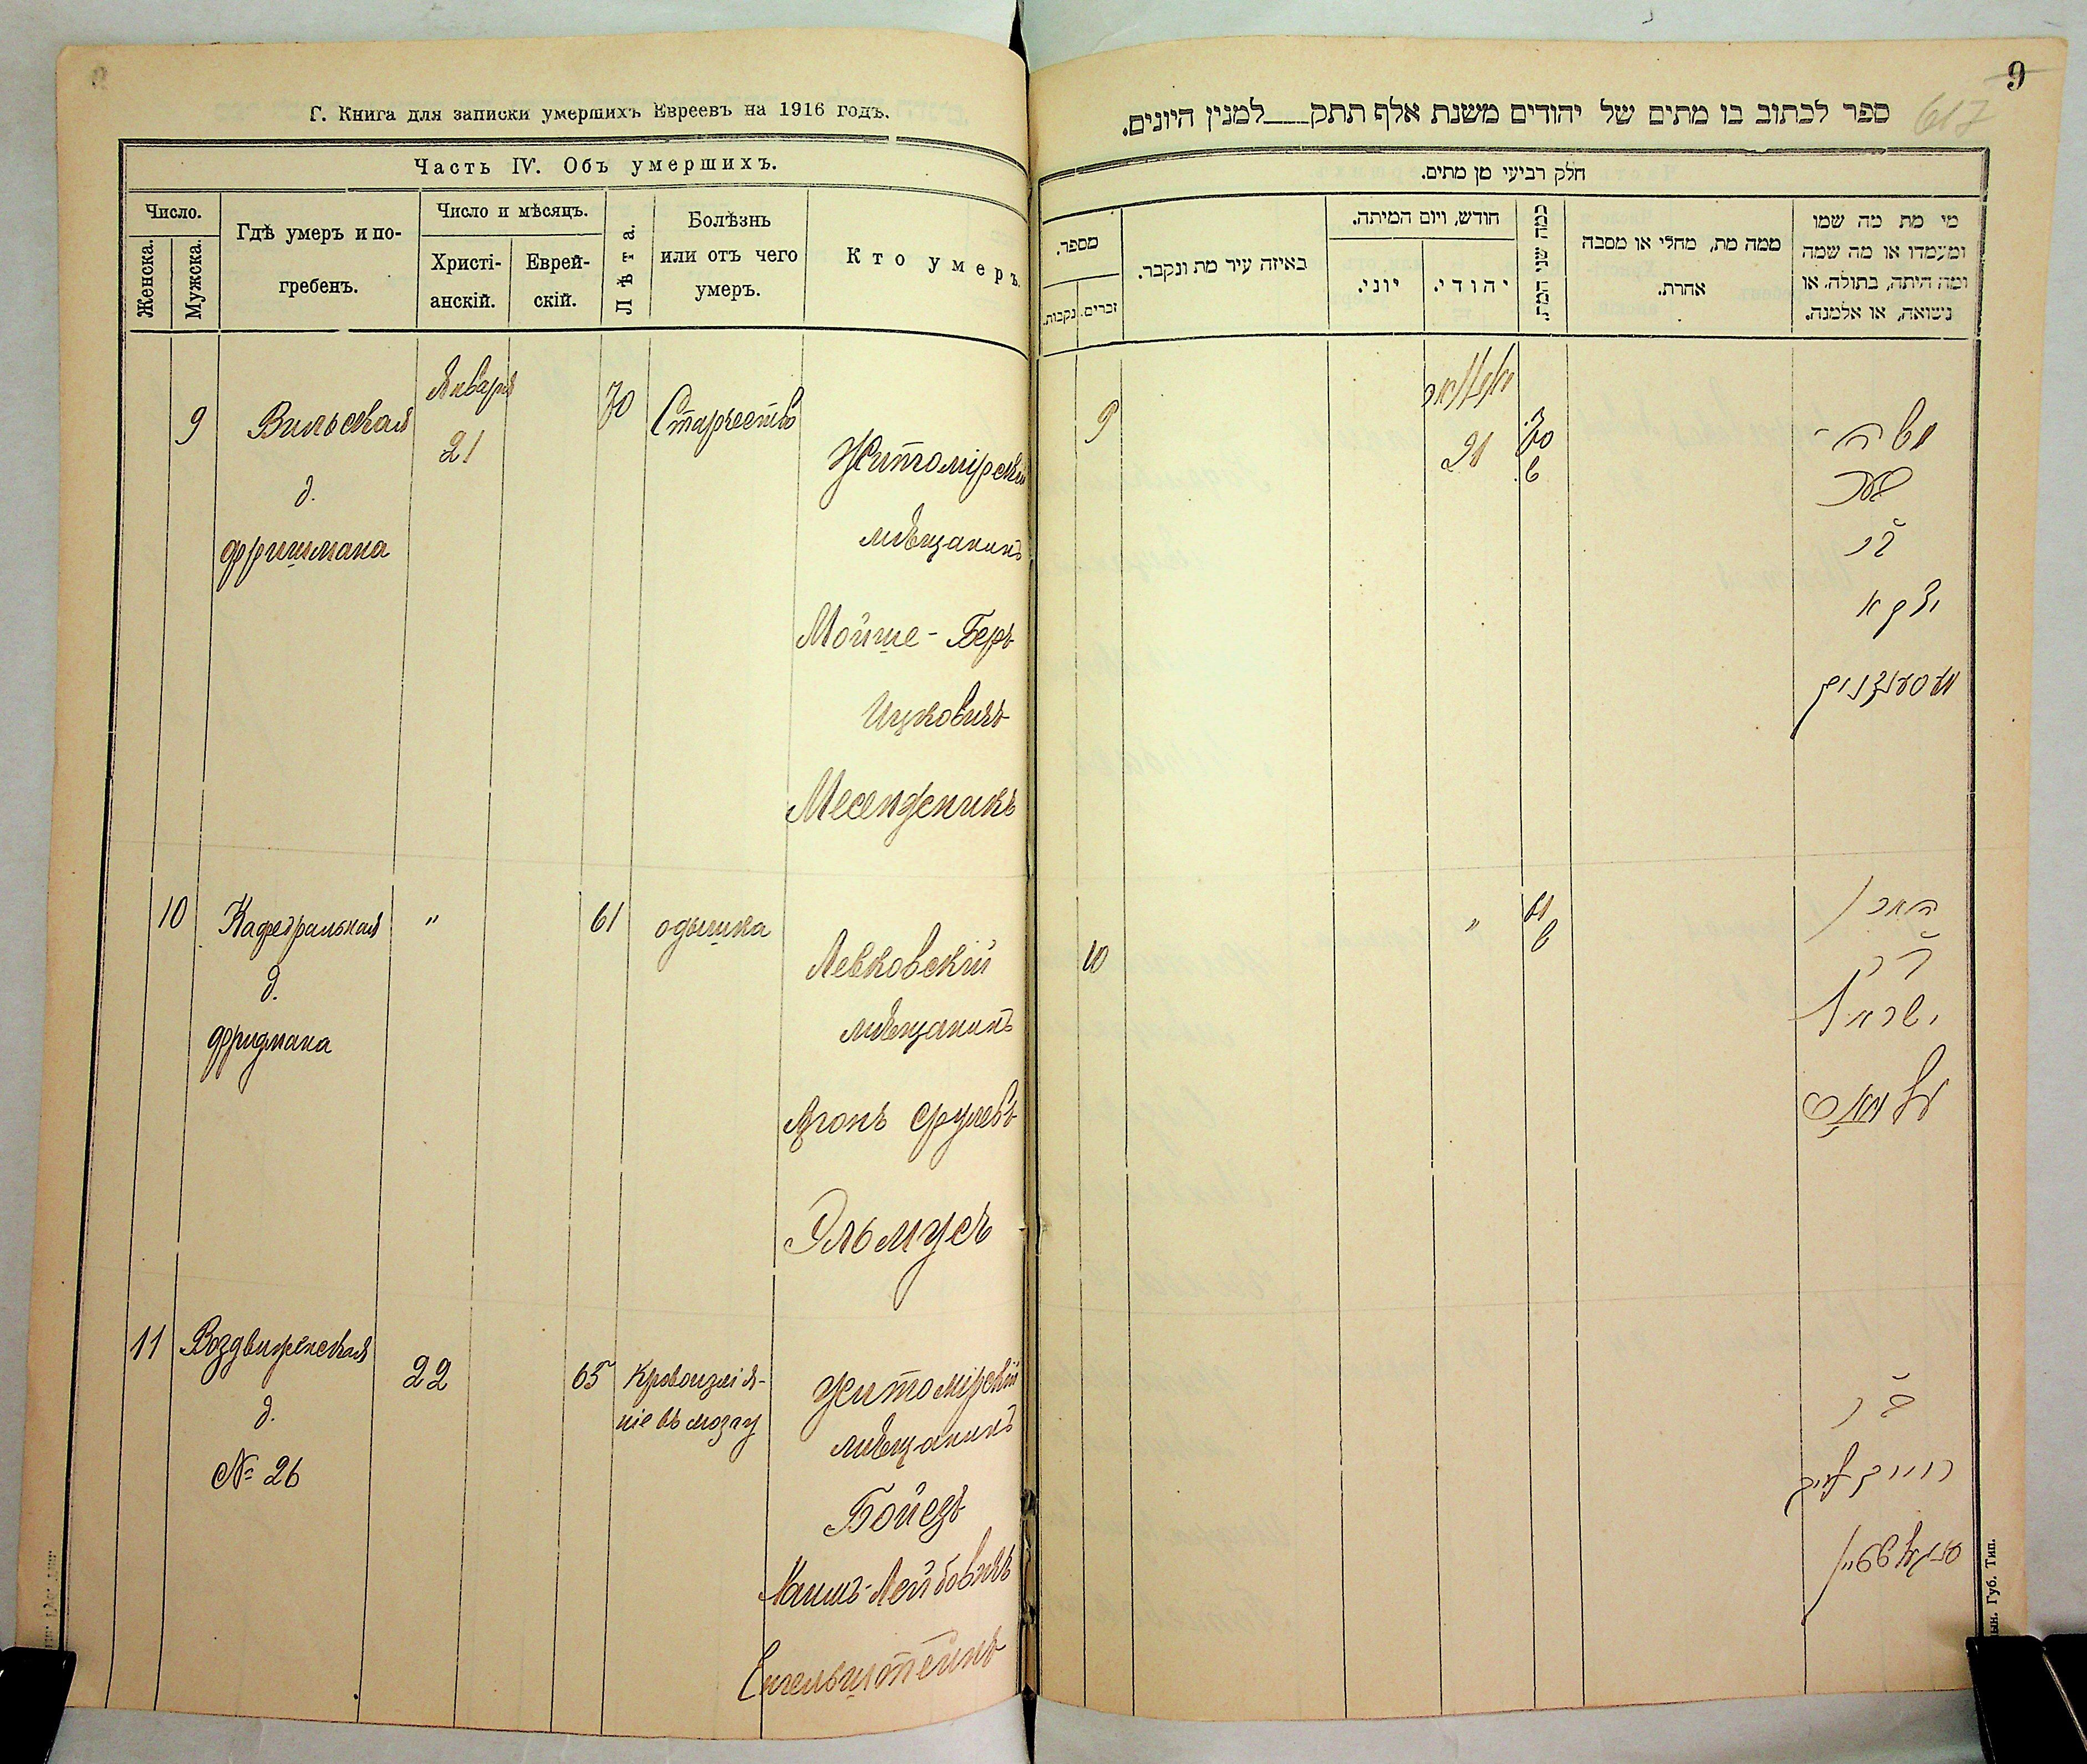 Г. Книга для записки умершихъ Евреевъ на 1916 годъ.
Часть IV. Объ умершихъ.
Число.
Женска.
Мужска.
Гдѣ умеръ и по-
гребенъ.
Число и мѣсяцъ.
Христі-
анскій.
Еврей-
скій.
Лѣта.
Болѣзнь
или отъ чего
умеръ.
Кто умеръ.
9
Вильская
д.
Фришмана
Января
21
70
Старчество
Житомірскій
мѣщанинъ
Мойше-Беръ
Ицковичъ
Месенджникъ
10
Кафедральная
д.
Фридмана
"
61
одышка
Левковскій
мѣщанинъ
Агонъ Срулевъ
Эльмусъ
11
Воздвиженская
д.
№ 26
22
65
Кровоизлія-
ніе въ мозгу
Житомірскій
мѣщанинъ
Лейбовичъ
9
617
ספר לכתוב בו מתים של יהודים משנת אלף תתק___למנין היונים.
חלק רביעי מן מתים.
מספר.
נקבות.
זכרים.
באיזה עיר מת ונקבר.
חודש, ויום המיתה.
יוני.
יהודי.
כמה שני המת.
ממה מת, מחלי או מסבה
אחרת.
מי מת מה שמו
ומעמדו או מה שמה
ומה היתה, בתולה, או
נשואה, או אלמנה.
9
21
70
משה
בער
בר
יצקא
10
"
61
אהרן
בר
ישראל
עלמוס
בר
Губ. Тип.